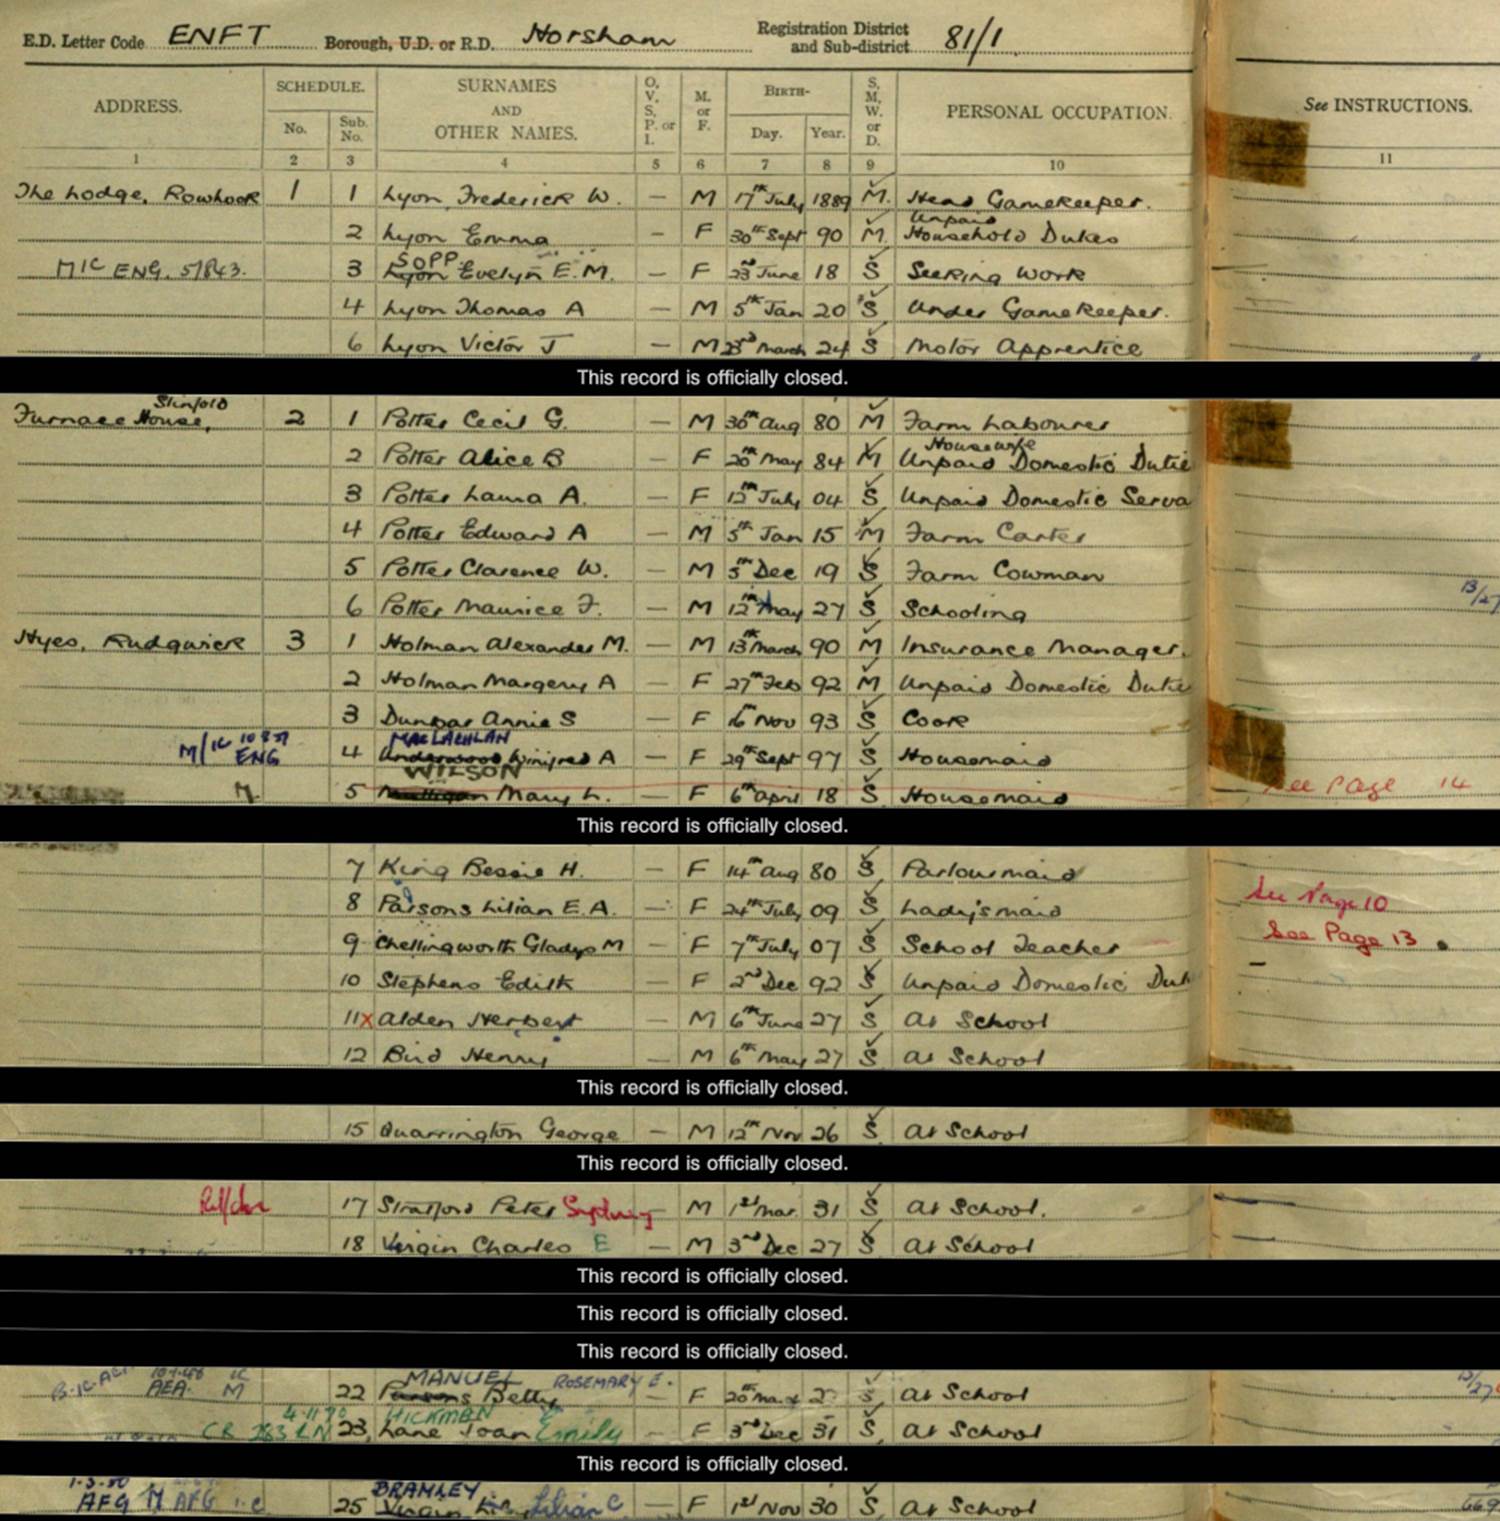 E.D. Letter Code ENFT Borough, U.D. or R.D. Horsham Registration District and Sub-district 81/1
ADDRESS. SCHEDULE. No. Sub. No. SURNAMES AND OTHER NAMES. O, V, S, P. or I. M. or F. BIRTH- Day. Year. S, M, W. or D. PERSONAL OCCUPATION. See INSTRUCTIONS.
1 2 3 4 5 6 7 8 9 10 11
The Lodge, Rowhook 1 1 Lyon, Frederick W. — M 17th July 1889 M. Head Gamekeeper.
2 Lyon Emma — F 30th Sept 90 M. Unpaid Household Duties
M/C ENG. 51843. 3 SOPP Lyon Evelyn E.M. — F 23rd June 18 S Seeking Work
4 Lyon Thomas A — M 5th Jan 20 S Under Gamekeeper.
6 Lyon Victor J — M 23rd March 24 S Motor Apprentice
This record is officially closed.
Furnace House, Slinfold 2 1 Potter Cecil G. — M 30th Aug 80 M Farm Labourer
2 Potter Alice B — F 20th May 84 M Housewife Unpaid Domestic Dutie
3 Potter Laura A. — F 12th July 04 S Unpaid Domestic Serva
4 Potter Edward A — M 5th Jan 15 M Farm Carter
5 Potter Clarence W. — M 5th Dec 19 S Farm Cowman
6 Potter Maurice F. — M 12th May 27 S Schooling
Hyes, Rudgwick 3 1 Holman Alexander M. — M 13th March 90 M Insurance Manager.
2 Holman Margery A — F 27th Feb 92 M Unpaid Domestic Dutie
3 Dunbar Annie S — F 16th Nov 93 S Cook
M/C ENG 4 MACLACHLAN Underwood Winifred A — F 29th Sept 97 S Housemaid
5 WILSON Mulligan Mary L. — F 6th April 18 S Housemaid See Page 14
This record is officially closed.
7 King Bessie H. — F 14th Aug 80 S Parlourmaid
8 Parsons Lilian E.A. — F 24th July 09 S Lady's maid See Page 10
9 Chellingworth Gladys M — F 7th July 07 S School Teacher See Page 13
10 Stephens Edith — F 2nd Dec 92 S Unpaid Domestic Duti
11 x Alden Herbert — M 6th June 27 S At School
12 Bird Henry — M 6th May 27 S At School
This record is officially closed.
15 Quarrington George — M 12th Nov 26 S At School
This record is officially closed.
17 Stratford Peter Sydney — M 1st Mar. 31 S At School.
18 Virgin Charles E — M 3rd Dec 27 S At School
This record is officially closed.
This record is officially closed.
This record is officially closed.
AEA. M 22 MANUEL Parsons Betty ROSEMARY E. — F S At School
4.11.70 CR 283 LN 23, HICKMAN Lane Joan Emily — F 3rd Dec 31 S, At School
This record is officially closed.
1.3.50 AFG M AFG 25 BRAMLEY Virgin Lilian C — F 1st Nov 30 S, At School